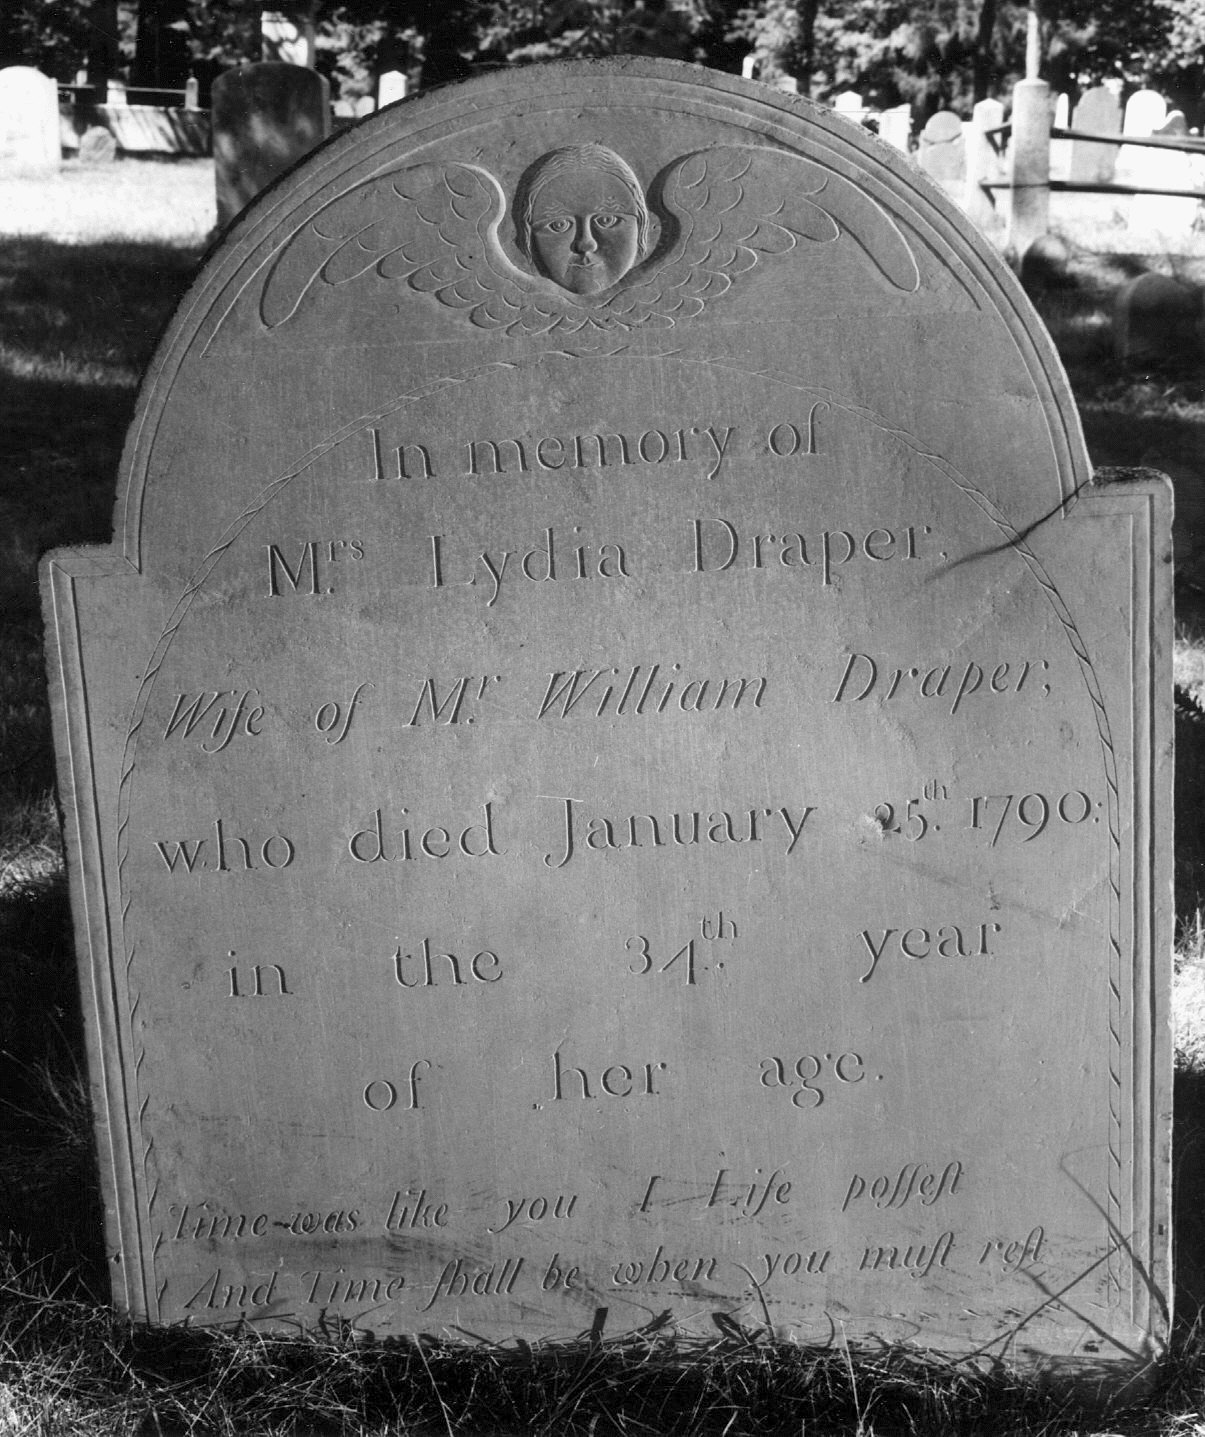 In memory of
Mrs. Lydia Draper,
Wife of Mr. William Draper,
who died January 25th. 1790:
in the 34th. year
of her age.
Time was like you I Life poſſeſt
And Time ſhall be when you muſt reſt